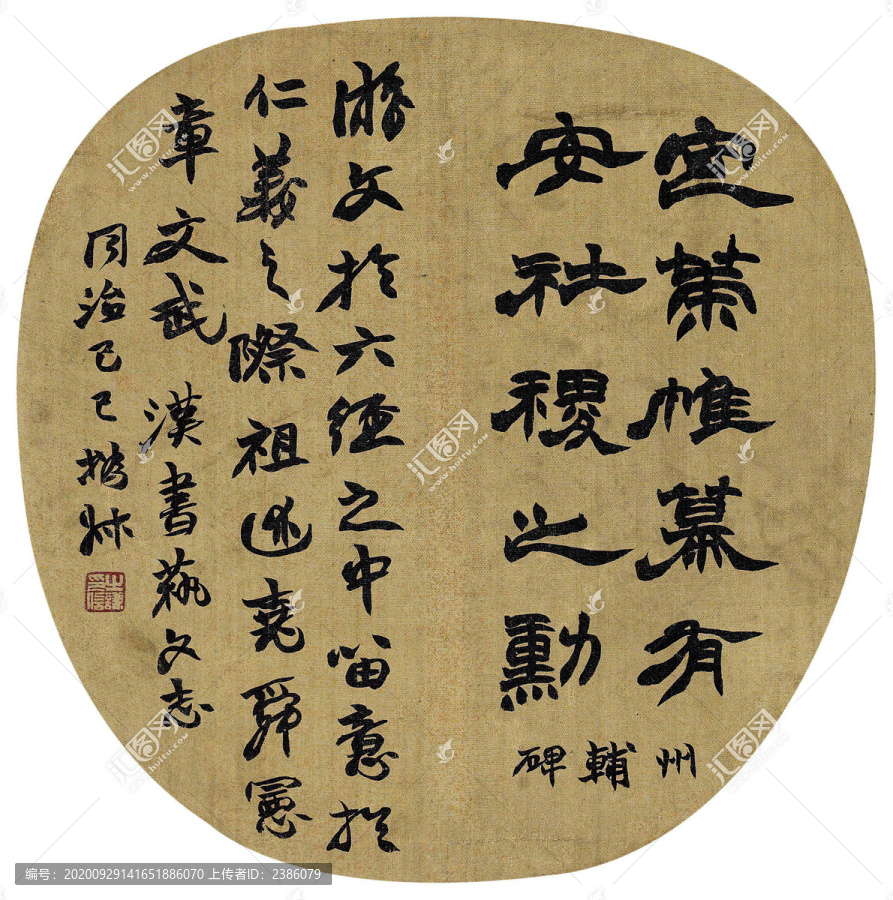 定策帷幕有
安社稷之勳
州輔碑
游文於六經之中留意於
仁義之際祖述堯舜憲
章文武 漢書藝文志
同治己巳撝叔
汇图网
www.huitu.com
编号：20200929141651886070 上传者ID：2386079